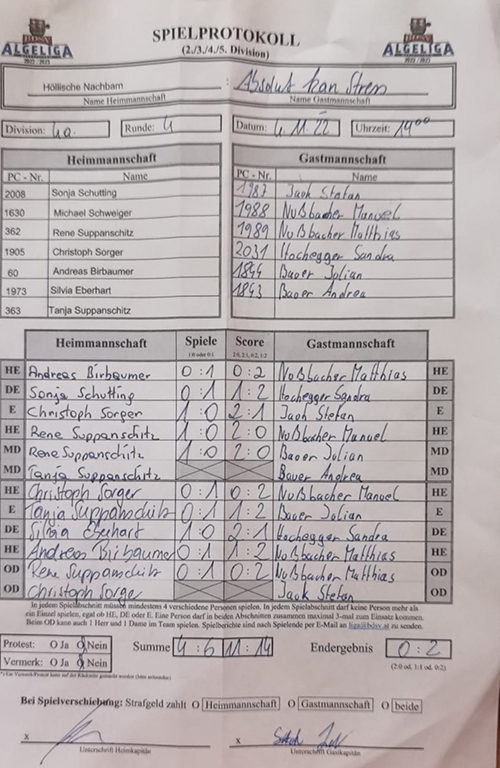 ALGELIGA SPIELPROTOKOLL ALGELIGA
2022/2023 (2./3./4./5. Division) 2022/2023
Höllische Nachbarn : Absolut kan Stress
Name Heimmannschaft Name Gastmannschaft
Division: 4a Runde: 4 Datum: 4.11.22 Uhrzeit: 19⁰⁰
Heimmannschaft Gastmannschaft
PC - Nr. Name PC - Nr. Name
2008 Sonja Schutting 1987 Jach Stefan
1630 Michael Schweiger 1988 Nußbacher Manuel
362 Rene Suppanschitz 1989 Nußbacher Matthias
1905 Christoph Sorger 2031 Hochegger Sandra
60 Andreas Birbaumer 1844 Bauer Julian
1973 Silvia Eberhart 1843 Bauer Andrea
363 Tanja Suppanschitz
Heimmannschaft Spiele Score Gastmannschaft
1:0 oder 0:1 2:0, 2:1, 0:2, 1:2
HE Andreas Birbaumer 0:1 0:2 Nußbacher Matthias HE
DE Sonja Schutting 0:1 1:2 Hochegger Sandra DE
E Christoph Sorger 1:0 2:1 Jach Stefan E
HE Rene Suppanschitz 1:0 2:0 Nußbacher Manuel HE
MD Rene Suppanschitz 1:0 2:0 Bauer Julian MD
MD Tanja Suppanschitz Bauer Andrea MD
HE Christoph Sorger 0:1 0:2 Nußbacher Manuel HE
E Tanja Suppanschitz 0:1 1:2 Bauer Julian E
DE Silvia Eberhart 1:0 2:1 Hochegger Sandra DE
HE Andreas Birbaumer 0:1 1:2 Nußbacher Matthias HE
OD Rene Suppanschitz 0:1 0:2 Nußbacher Matthias OD
OD Christoph Sorger Jach Stefan OD
In jedem Spielabschnitt müssen mindestens 4 verschiedene Personen spielen. In jedem Spielabschnitt darf keine Person mehr als
ein Einzel spielen, egal ob HE, DE oder E. Eine Person darf in beiden Abschnitten zusammen maximal 3-mal zum Einsatz kommen.
Beim OD kann auch 1 Herr und 1 Dame im Team spielen. Spielberichte sind nach Spielende per E-Mail an liga@bdsv.at zu senden.
Protest: O Ja O Nein Summe 4:6 11:14 Endergebnis 0:2
Vermerk: O Ja O Nein (2:0 od. 1:1 od. 0:2)
Bei Spielverschiebung: Strafgeld zahlt O Heimmannschaft O Gastmannschaft O beide
x x
Unterschrift Heimkapitän Unterschrift Gastkapitän